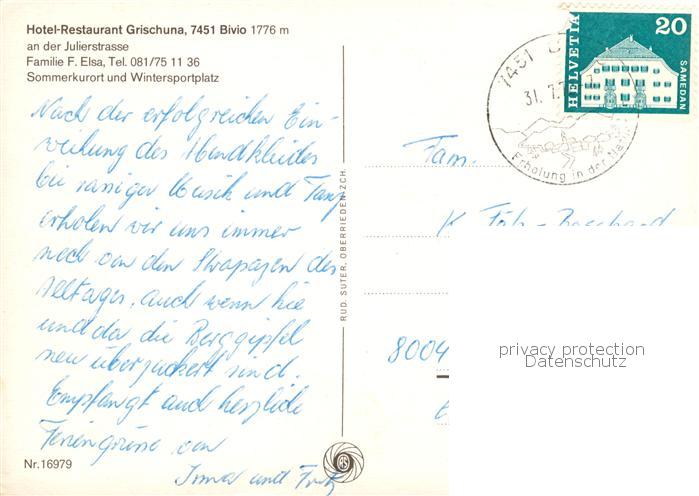 Hotel-Restaurant Grischuna, 7451 Bivio 1776 m
an der Julierstrasse
Familie F. Elsa, Tel. 081/75 11 36
Sommerkurort und Wintersportplatz
Nach der erfolgreichen Ein-
weihung des Hendkleides
bei rassiger Musik und Tanz
erholen wir uns immer
noch von den Strapazen des
Alltages, auch wenn hie
und da die Berggipfel
neu überzuckert sind.
Empfangt auch herzliche
Feriengrüsse von
Irma und Fritz
Nr. 16979
RUD. SUTER, OBERRIEDEN-ZCH.
HELVETIA
20
SAMEDAN
7451
31. 7.
Erholung in der
Fam.
K.
8004
privacy protection
Datenschutz